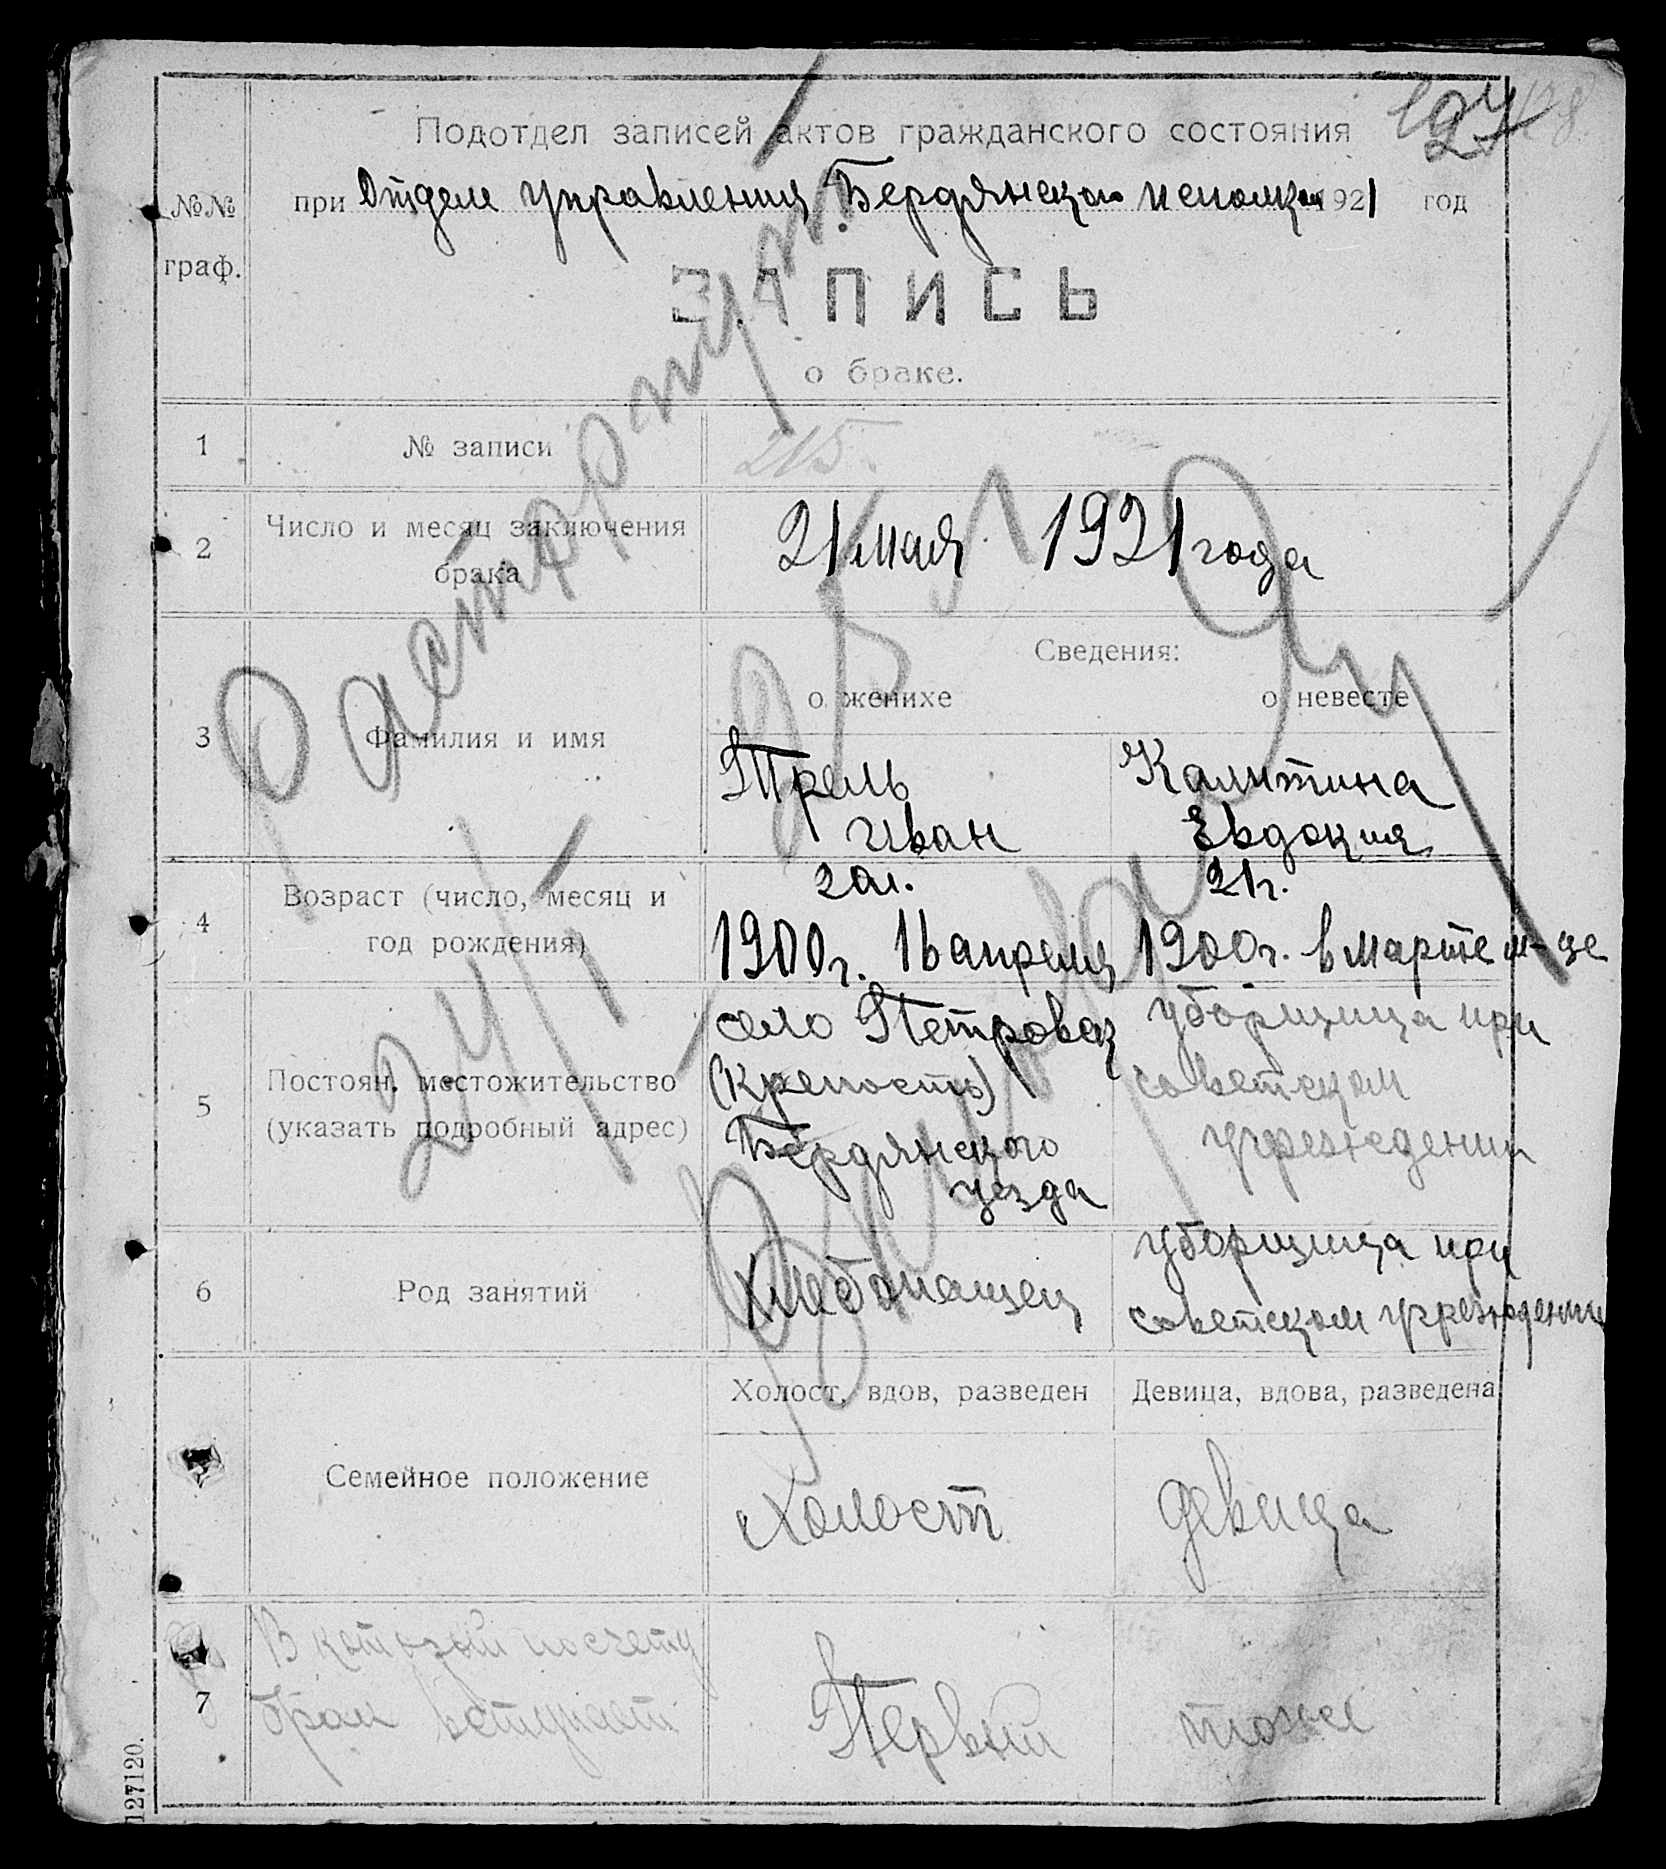 127
128
Подотдел записей актов гражданского состояния
№№ граф.
при Отделе Управления Бердянского исполкома 1921 год
ЗАПИСЬ
о браке.
1 № записи 215.
2 Число и месяц заключения брака 21 мая 1921 года
Сведения:
о женихе о невесте
3 Фамилия и имя
Трель Иван
Калитина Евдокия
4 Возраст (число, месяц и год рождения)
20 л. 1900 г. 16 апреля
21 г. 1900 г. в марте м-це
5 Постоян. местожительство (указать подробный адрес)
село Петровка
(крепость)
Бердянского
уезда
уборщица при
советском
учреждении
6 Род занятий
Хлебопашец
уборщица при
советском учреждении
Холост, вдов, разведен Девица, вдова, разведена
Семейное положение
Холост девица
7 В который по счету
брак вступает
Первый тоже
Расторгнут
127120.